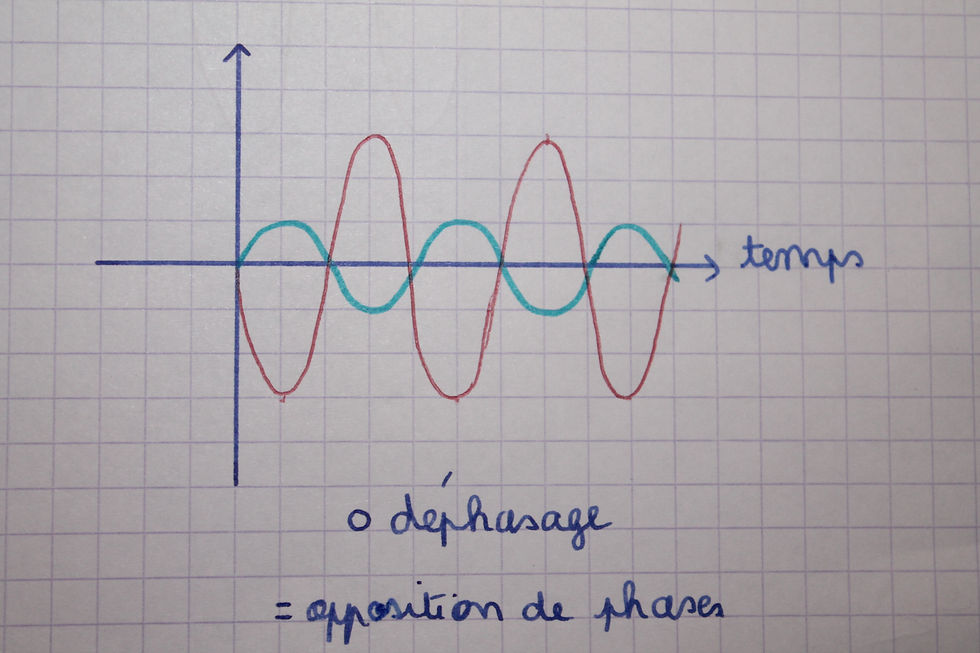 temps
0 déphasage
= opposition de phases